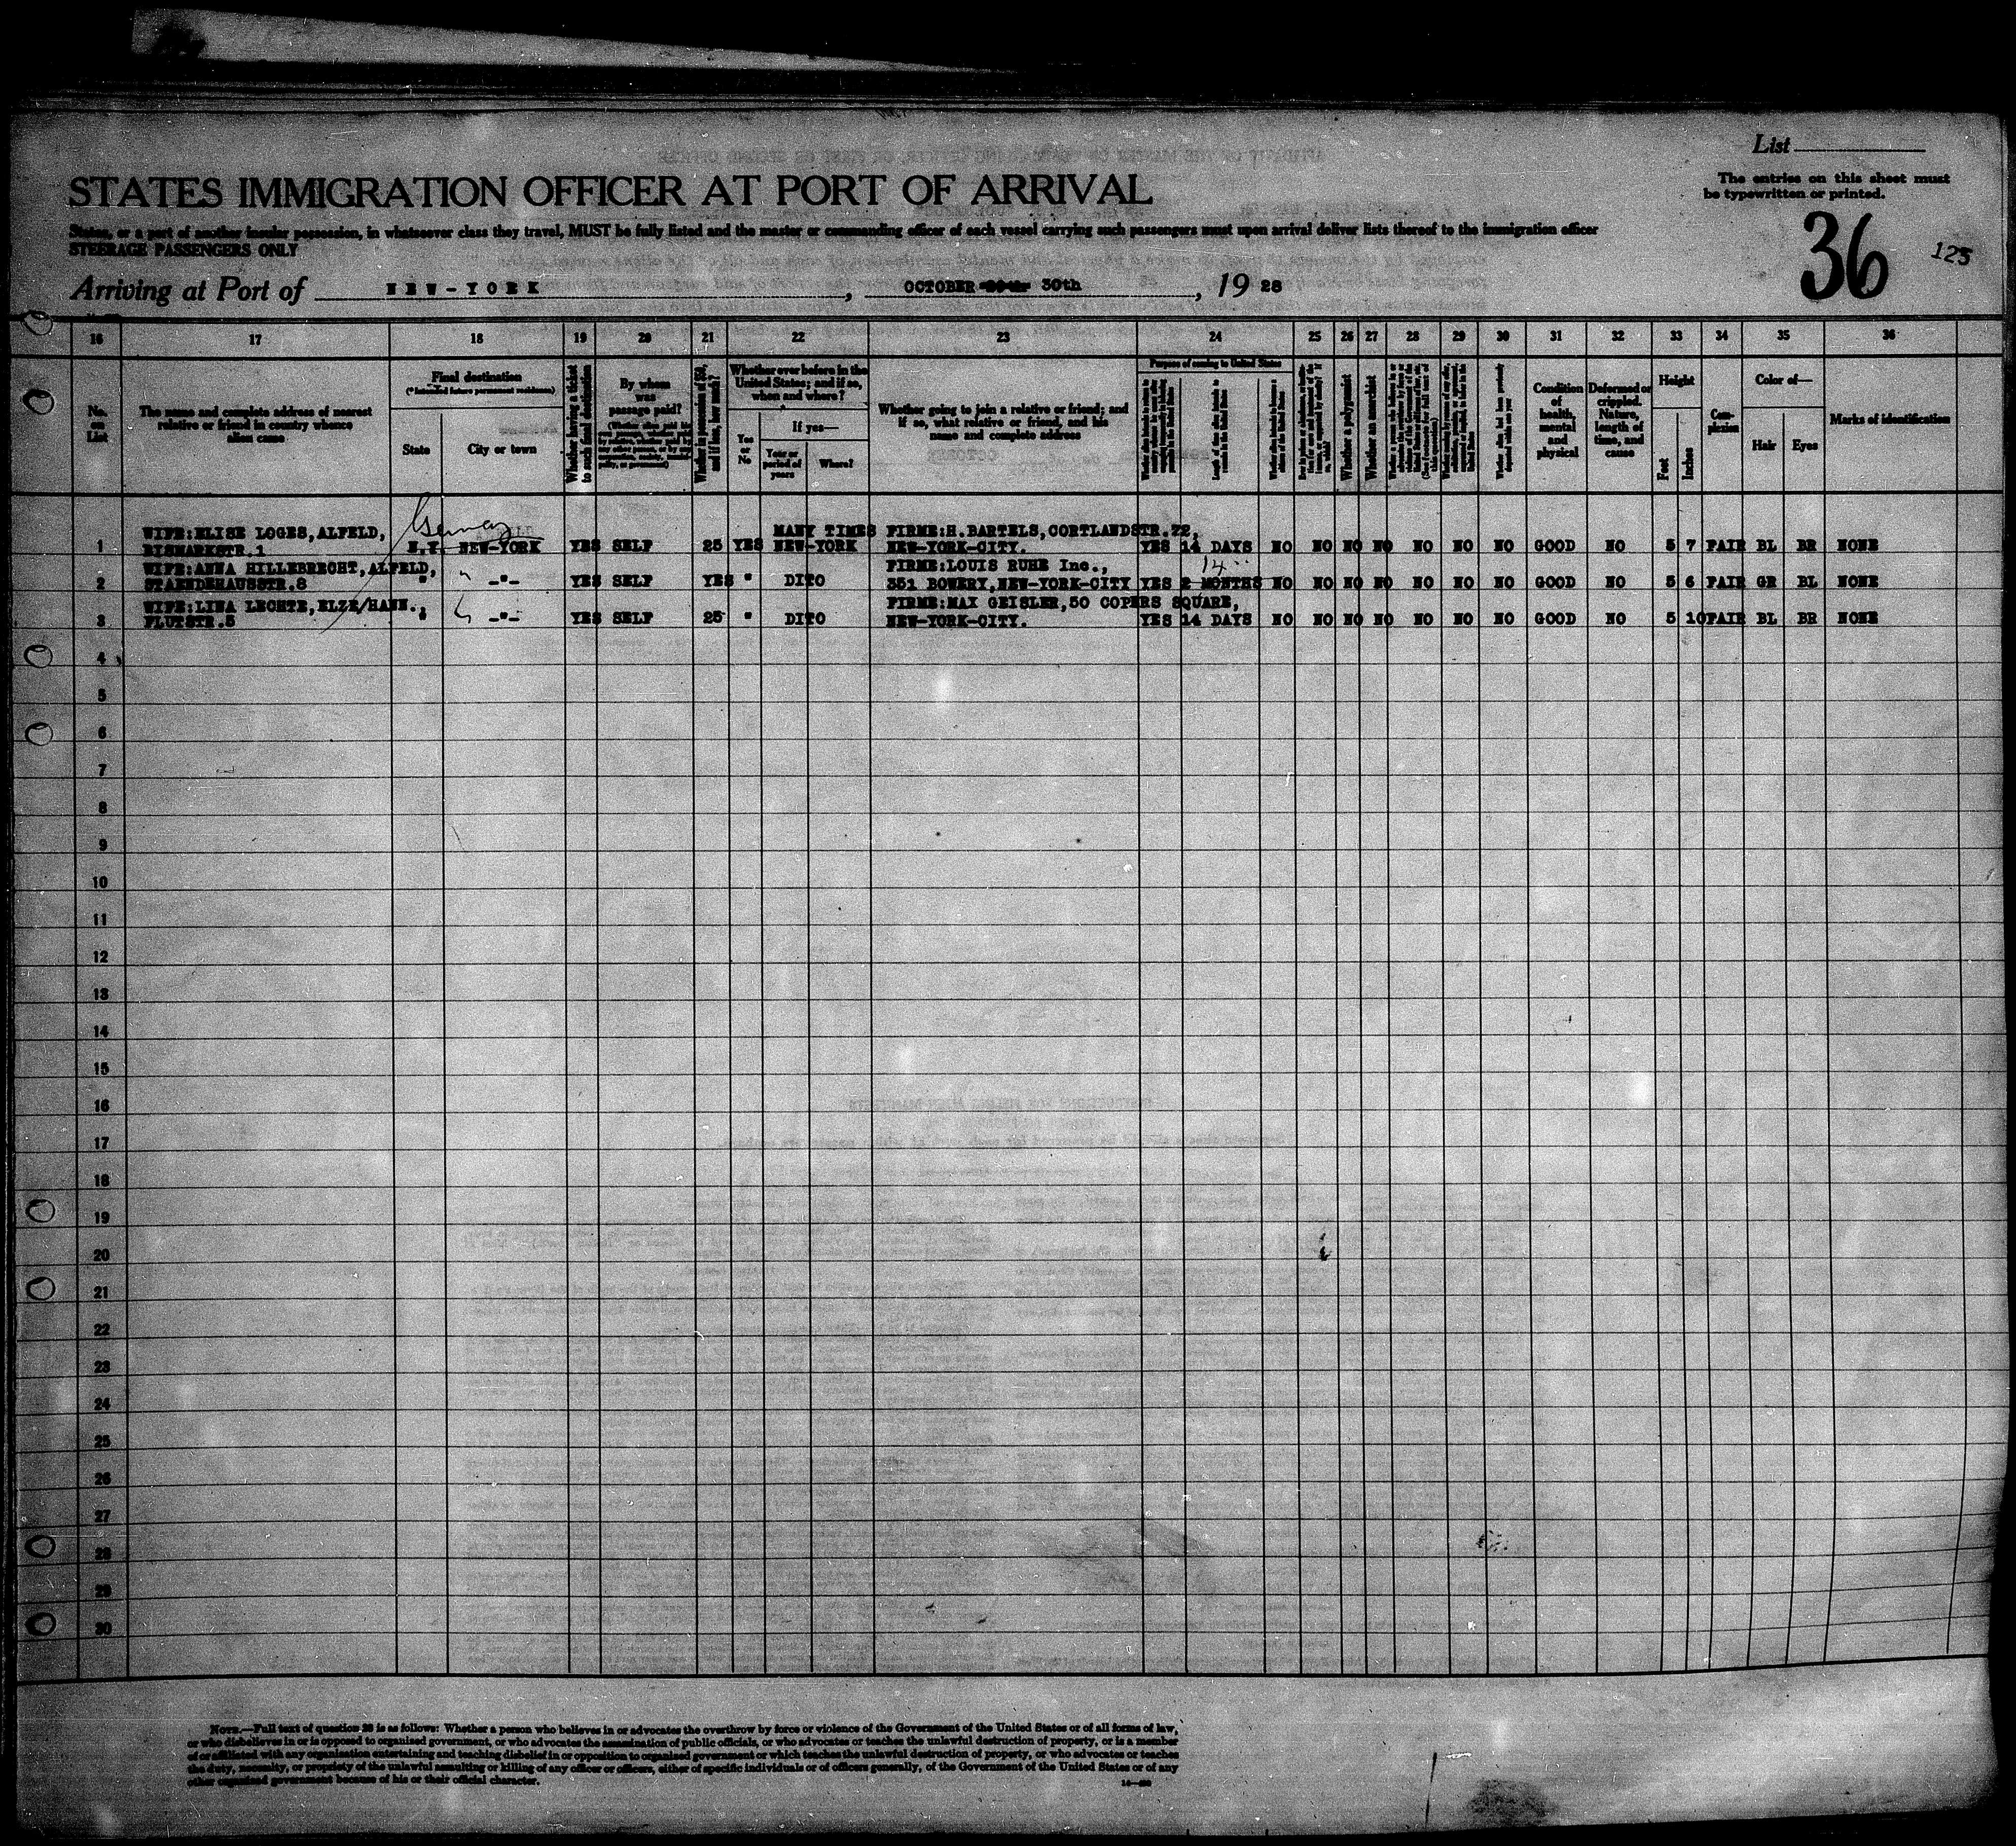 List
STATES IMMIGRATION OFFICER AT PORT OF ARRIVAL
The entries on this sheet must
be typewritten or printed.
States, or a part of another insular possession, in whatsoever class they travel, MUST be fully listed and the master or commanding officer of each vessel carrying such passengers must upon arrival deliver lists thereof to the immigration officer
STEERAGE PASSENGERS ONLY
36
125
Arriving at Port of NEW-YORK, OCTOBER 30th, 1928
16 17 18 19 20 21 22 23 24 25 26 27 28 29 30 31 32 33 34 35 36
No. on List
The name and complete address of nearest
relative or friend in country whence
alien came
Final destination
(* Intended future permanent residence)
State
City or town
Whether having a ticket
to such final destination
By whom
was
passage paid?
Whether in possession of $50,
and if less, how much?
Whether ever before in the
United States; and if so,
when and where?
Yes
or
No
If yes—
Year or
period of
years
Where?
Whether going to join a relative or friend; and
if so, what relative or friend, and his
name and complete address
Purpose of coming to United States
Length of time alien intends to
remain in the United States
Whether a polygamist
Whether an anarchist
Condition
of
health,
mental
and
physical
Deformed or
crippled.
Nature,
length of
time, and
cause
Height
Feet
Inches
Com-
plexion
Color of—
Hair
Eyes
Marks of identification
Germany
WIFE:ELISE LOGES,ALFELD, MANY TIMES FIRME:H.BARTELS,CORTLANDSTR.72,
1 BISMARKSTR.1 N.Y. NEW-YORK YES SELF 25 YES NEW-YORK NEW-YORK-CITY. YES 14 DAYS NO NO NO NO NO NO NO GOOD NO 5 7 FAIR BL BR NONE
WIFE:ANNA HILLEBRECHT,ALFELD, FIRME:LOUIS RUHE Inc., 14 "
2 STAENDEHAUSSTR.8 " -"- YES SELF YES " DITO 351 BOWERY,NEW-YORK-CITY YES 2 MONTHS NO NO NO NO NO NO NO GOOD NO 5 6 FAIR GR BL NONE
WIFE:LINA LECHTE,ELZE/HANN., FIRME:MAX GEISLER,50 COPERS SQUARE,
3 FLUTSTR.5 " -"- YES SELF 25 " DITO NEW-YORK-CITY. YES 14 DAYS NO NO NO NO NO NO NO GOOD NO 5 10 FAIR BL BR NONE
4
5
6
7
8
9
10
11
12
13
14
15
16
17
18
19
20
21
22
23
24
25
26
27
28
29
30
NOTE.—Full text of question 28 is as follows: Whether a person who believes in or advocates the overthrow by force or violence of the Government of the United States or of all forms of law,
or who disbelieves in or is opposed to organized government, or who advocates the assassination of public officials, or who advocates or teaches the unlawful destruction of property, or is a member
of or affiliated with any organization entertaining and teaching disbelief in or opposition to organized government or which teaches the unlawful destruction of property, or who advocates or teaches
the duty, necessity, or propriety of the unlawful assaulting or killing of any officer or officers, either of specific individuals or of officers generally, of the Government of the United States or of any
other organized government because of his or their official character.